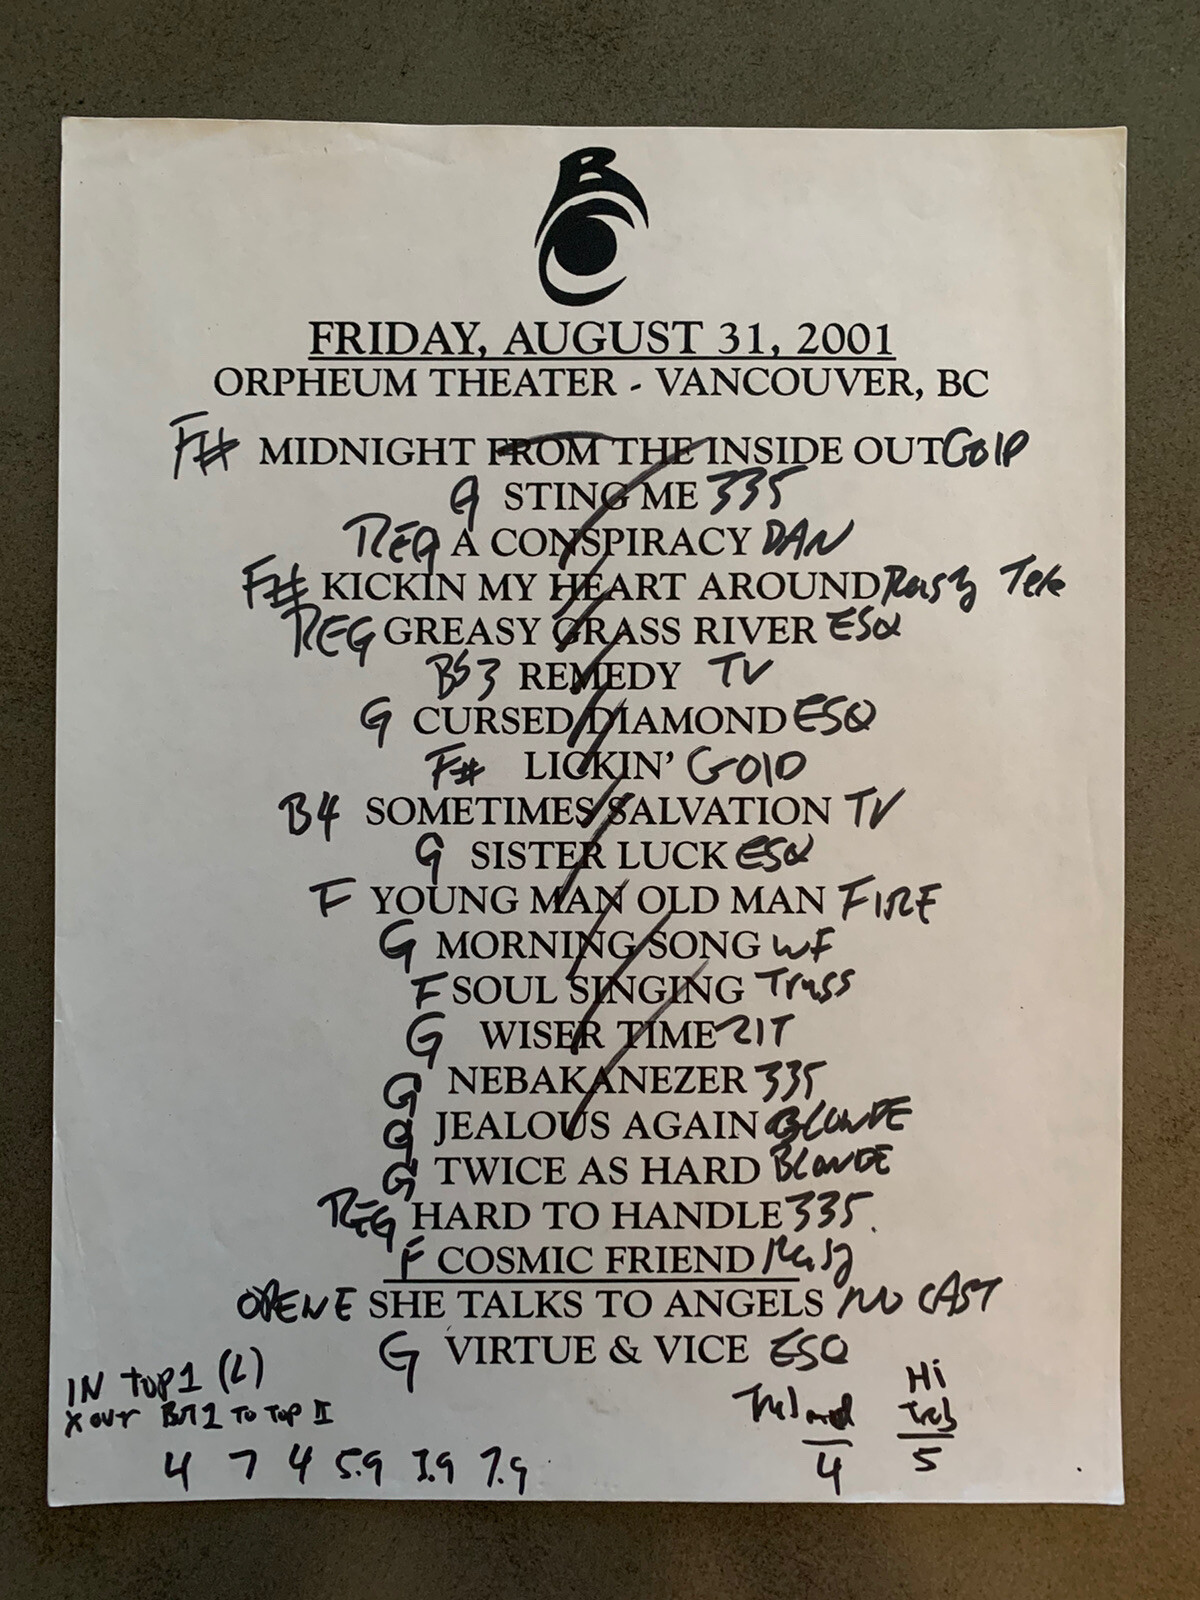 BC
FRIDAY, AUGUST 31, 2001
ORPHEUM THEATER - VANCOUVER, BC
F# MIDNIGHT FROM THE INSIDE OUT GOLD
G STING ME 335
REG A CONSPIRACY DAN
F# KICKIN MY HEART AROUND Tele
REG GREASY GRASS RIVER ESQ
B53 REMEDY TV
G CURSED DIAMOND ESQ
F# LICKIN' GOLD
B4 SOMETIMES SALVATION TV
G SISTER LUCK ESQ
F YOUNG MAN OLD MAN FIRE
G MORNING SONG WF
F SOUL SINGING Truss
G WISER TIME ZIT
G NEBAKANEZER 335
G JEALOUS AGAIN BLONDE
G TWICE AS HARD BLONDE
REG HARD TO HANDLE 335
F COSMIC FRIEND
OPEN E SHE TALKS TO ANGELS NO CAST
G VIRTUE & VICE ESQ
IN TOP 1 (L)
X OUT TO TOP II
4 7 4 5.9 3.9 7.9
4
Hi
Treb
5